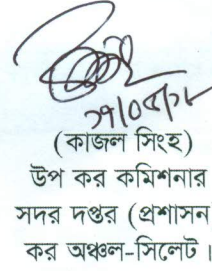 (কাজল সিংহ)
উপ কর কমিশনার
সদর দপ্তর (প্রশাসন
কর অঞ্চল-সিলেট।